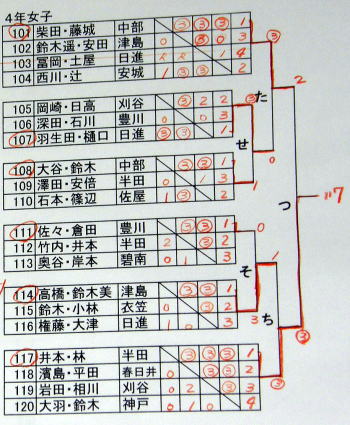 4年女子
101 柴田・藤城 中部 ③ ③ ③ 1
102 鈴木遥・安田 津島 0 ③ 0 3
103 冨岡・土屋 日進 2 2 1 4
104 西川・辻 安城 1 ③ ③ 2
105 岡崎・日高 刈谷 ③ 2 2
106 深田・石川 豊川 0 0 3
107 羽生田・樋口 日進 ③ ③ 1
108 大谷・鈴木 中部 ③ ③ 1
109 澤田・安倍 半田 0 1 3
110 石本・篠辺 佐屋 1 ③ 2
111 佐々・倉田 豊川 ③ ③ 1
112 竹内・井本 半田 2 ③ 2
113 奥谷・岸本 碧南 0 1 3
114 高橋・鈴木美 津島 ③ ③ 1
115 鈴木・小林 衣笠 0 ③ 2
116 権藤・大津 日進 1 0 3
117 井本・林 半田 ③ ③ ③ 1
118 濱島・平田 春日井 0 ③ ③ 2
119 岩田・相川 刈谷 0 2 ③ 3
120 大羽・鈴木 神戸 0 1 0 4
た
せ
つ
そ
ち
③
2
③
0
1
0
1
3
③
③
117